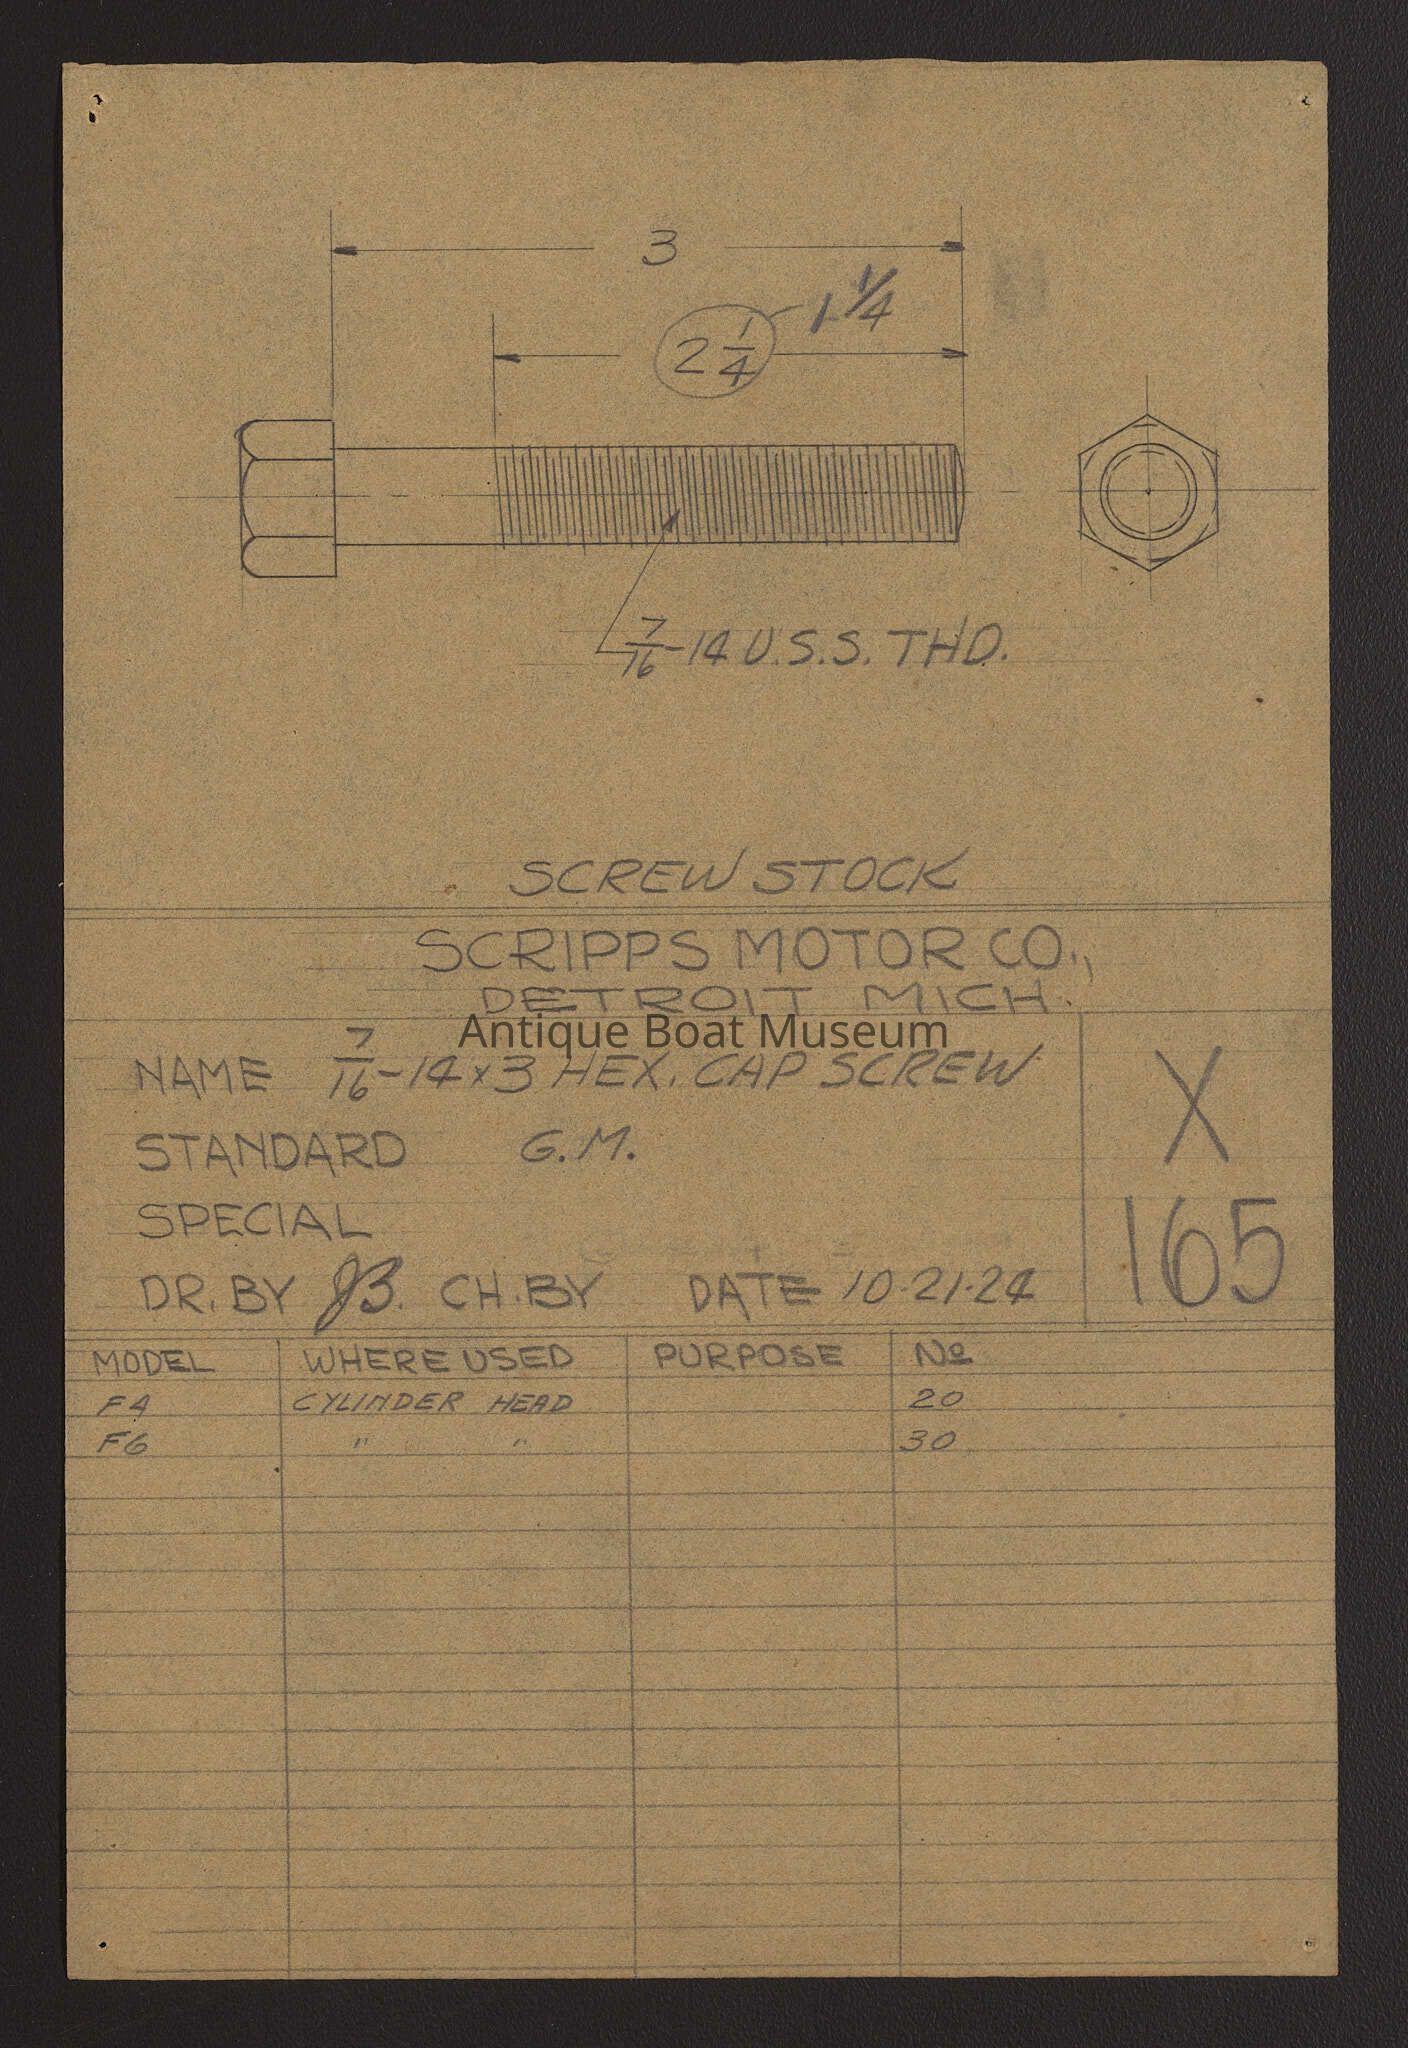 3
2 1/4 1 1/4
7/16-14 U.S.S. THD.
SCREW STOCK
SCRIPPS MOTOR CO.,
DETROIT MICH.
Antique Boat Museum
NAME 7/16-14x3 HEX. CAP SCREW
X
STANDARD G.M.
SPECIAL
165
DR. BY JB. CH. BY DATE 10-21-24
MODEL WHERE USED PURPOSE No
F4 CYLINDER HEAD 20
F6 " " 30